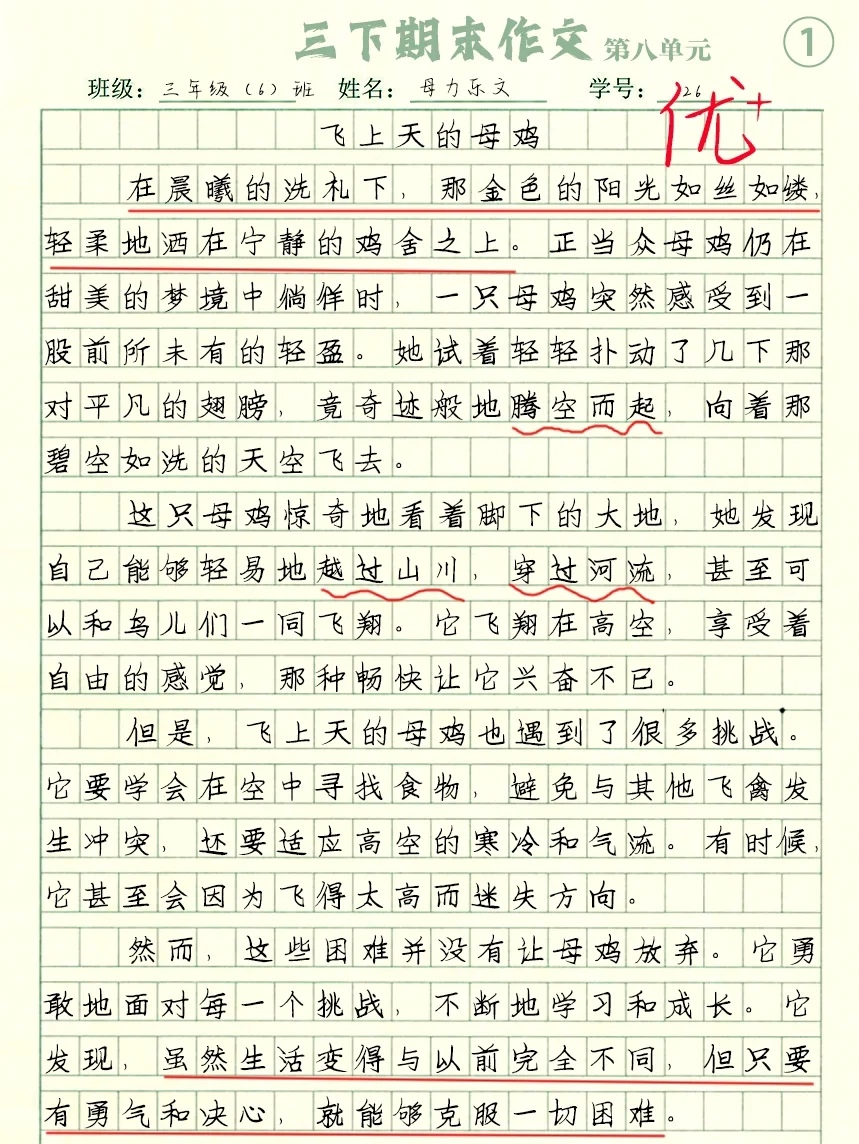 三下期末作文 第八单元 1
班级：三年级（6）班 姓名：母力乐文 学号：26
优+
飞上天的母鸡
在晨曦的洗札下，那金色的阳光如丝如缕，
轻柔地洒在宁静的鸡舍之上。正当众母鸡仍在
甜美的梦境中徜徉时，一只母鸡突然感受到一
股前所未有的轻盈。她试着轻轻扑动了几下那
对平凡的翅膀，竟奇迹般地腾空而起，向着那
碧空如洗的天空飞去。
这只母鸡惊奇地看着脚下的大地，她发现
自己能够轻易地越过山川，穿过河流，甚至可
以和鸟儿们一同飞翔。它飞翔在高空，享受着
自由的感觉，那种畅快让它兴奋不已。
但是，飞上天的母鸡也遇到了很多挑战。
它要学会在空中寻找食物，避免与其他飞禽发
生冲突，还要适应高空的寒冷和气流。有时候，
它甚至会因为飞得太高而迷失方向。
然而，这些困难并没有让母鸡放弃。它勇
敢地面对每一个挑战，不断地学习和成长。它
发现，虽然生活变得与以前完全不同，但只要
有勇气和决心，就能够克服一切困难。